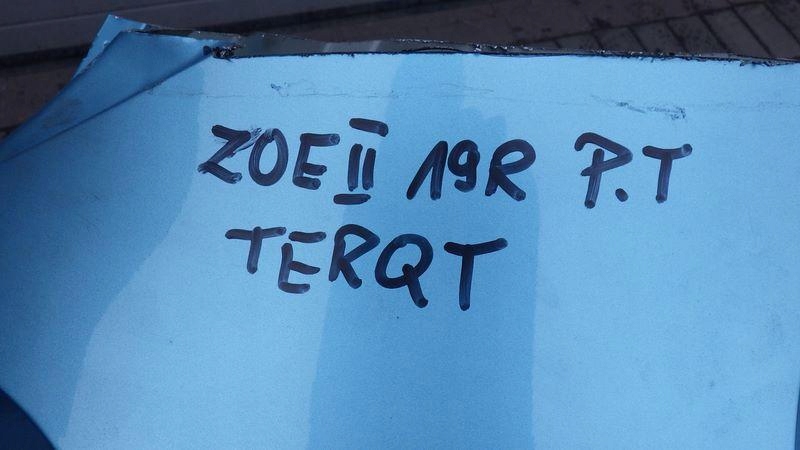 ZOE II 19R P.T
TERQT